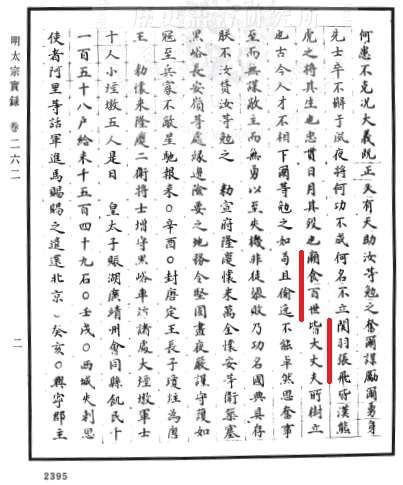 何患不克况大義既正又有天助汝等勉之奮爾謀勵爾勇身
先士卒不懈于夙夜將何功不成何名不立関羽張飛皆漢熊
虎之將其生也忠貫日月其殁也廟食百世皆大丈夫所樹立
也古今人才不相下爾等勉之如苟且偷逸不能卓然思奮事
至而無謀敵至而無勇以至失機非徒隳敗乃功名國典具存
朕不汝貸汝等勉之　勑宣府隆慶懷來萬全懷安等衛築塞
黑峪長安嶺等處緣邊險要之地務令堅固晝夜嚴謹守護如
寇至兵家不敵星馳報來○辛酉○封唐定王長子瓊烴為唐
王　勑懷來隆慶二衛將士增守黑峪車坊諸處大煙墩軍士
十人小煙墩五人是日　皇太子賑湖廣靖州會同縣飢民千
一百五十八戶給米千五百四十九石○壬戌○西域火剌思
使者阿里等詣軍進馬賜賜之遣還北京○癸亥○興寧郡主
明太宗實録　卷二六二
二
2395